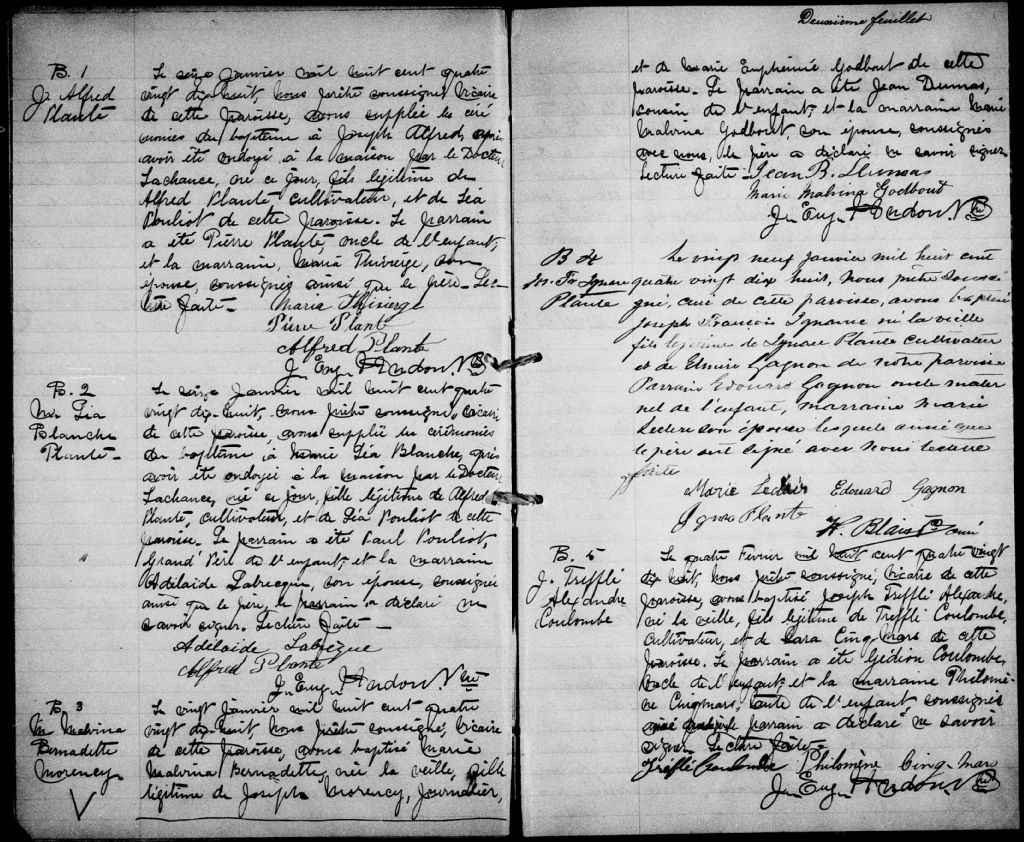 B. 1
J. Alfred
Plante
Le seize Janvier mil huit cent quatre
vingt dix-huit, nous prêtre soussigné, Vicaire
de cette paroisse, avons supplée les céré
monies du baptême à Joseph Alfred, après
avoir été ondoyé à la maison par le Docteur
Lachance, né ce jour, fils légitime de
Alfred Plante cultivateur, et de Léa
Pouliot de cette paroisse. Le parrain
a été Pierre Plante, oncle de l'enfant,
et la marraine, Maria Thivierge, son
épouse, soussignés ainsi que le père. Lec-
ture faite -
Maria Thivierge
Pierre Plante
Alfred Plante
J. Eug.
B. 2
M. Léa
Blanche
Plante -
Le seize Janvier mil huit cent quatre
vingt dix-huit, nous prêtre soussigné, Vicaire
de cette paroisse, avons supplée les cérémonies
du baptême à Marie Léa Blanche, après
avoir été ondoyée à la maison par le Docteur
Lachance, née ce jour, fille légitime de Alfred
Plante, cultivateur, et de Léa Pouliot de cette
paroisse. Le parrain a été Paul Pouliot,
Grand'Père de l'enfant, et la marraine
Adelaide Labrecque, son épouse, soussignée
ainsi que le père, le parrain a déclaré ne
savoir signer. Lecture faite -
Adélaide Labrèque
Alfred Plante
J. Eug.
B. 3
M. Malvina
Bernadette
Morency
Le vingt Janvier mil huit cent quatre
vingt dix-huit, nous prêtre soussigné, Vicaire
de cette paroisse, avons baptisé Marie
Malvina Bernadette, née la veille, fille
légitime de Joseph Morency, Journalier,
Deuxième feuillet
et de Marie Euphémie Godbout de cette
paroisse. Le parrain a été Jean Dumas,
cousin de l'enfant, et la marraine Marie
Malvina Godbout, son épouse, soussignés
avec nous, le père a déclaré ne savoir signer
Lecture faite - Jean B. Dumas
Marie Malvina Godbout
J. Eug.
B 4
Js. Fr. Ignace
Plante
Le vingt neuf janvier mil huit cent
quatre vingt dix huit, nous prêtre soussi
gné, curé de cette paroisse, avons baptisé
Joseph François Ignace né la veille
fils légitime de Ignace Plante cultivateur
et de Elmire Gagnon de notre paroisse
Parrain Edouard Gagnon oncle mater
nel de l'enfant, marraine Marie
Leclerc son épouse lesquels ainsi que
le père ont signé avec nous lecture
faite
Marie Leclerc Edouard Gagnon
Ignace Plante
H. Blais Ptre curé
B. 5
J. Trefflé
Alexandre
Coulombe
Le quatre Février mil huit cent quatre vingt
dix huit, nous prêtre soussigné, Vicaire de cette
paroisse, avons baptisé Joseph Trefflé Alexandre,
né la veille, fils légitime de Trefflé Coulombe,
cultivateur, et de Sara Cinq-Mars de cette
paroisse. Le parrain a été Gédion Coulombe,
oncle de l'enfant, et la marraine Philomè-
ne Cinqmars, tante de l'enfant soussignés
parrain a déclaré ne savoir
signer. Lecture faite -
Trefflé Coulombe Philomène Cinq-Mars
J. Eug.